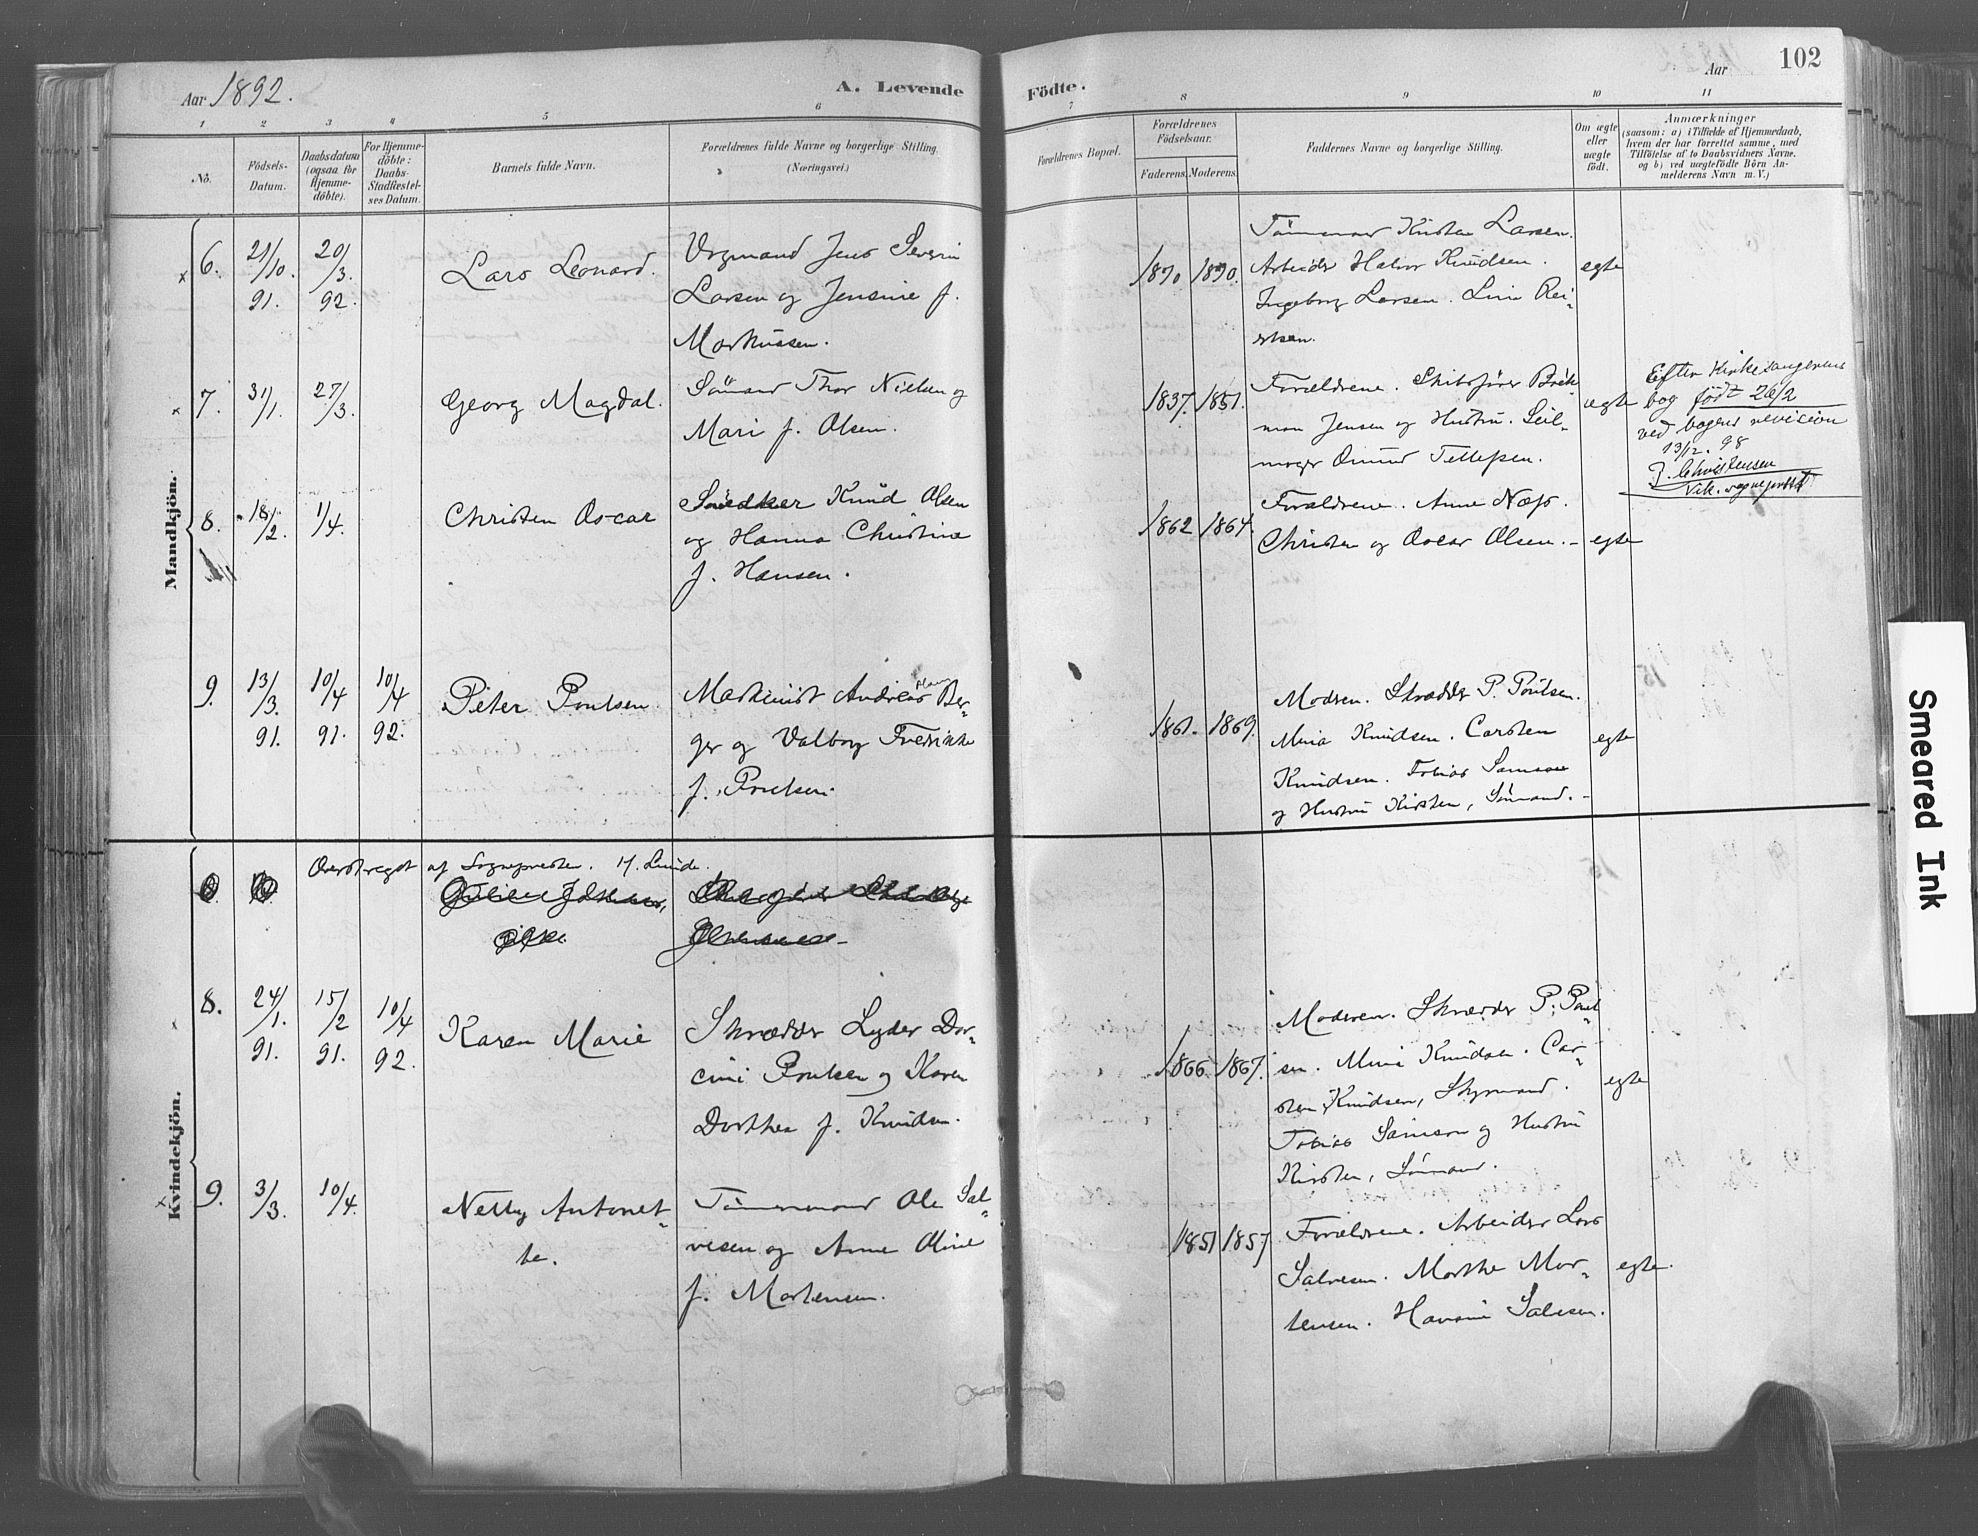 Aar 1892.
A. Levende
Födte.
Aar
102
1 2 3 4 5 6 7 8 9 10 11
No.
Födsels-
Datum.
Daabsdatum
(ogsaa for
Hjemme-
döbte).
For Hjemme-
döbte:
Daabs-
Stadfæstel-
ses Datum.
Barnets fulde Navn.
Forældrenes fulde Navne og borgerlige Stilling.
(Næringsvei.)
Forældrenes Bopæl.
Forældrenes
Födselsaar.
Faderens. Moderens.
Faddernes Navne og borgerlige Stilling.
Om ægte
eller
uægte
födt.
Anmærkninger
(saasom: a) i Tilfælde af Hjemmedaab,
hvem der har forrettet samme, med
Tilföielse af to Daabsvidners Navne.
og b) ved uægtefödte Börn An-
melderens Navn m. V.)
Mandkjön.
6.
21/10.
91.
20/3.
92.
Lars Leonard.
Jens Severin
Larsen og Jensine f.
Markussen.
1870 1870.
Tömmermand Kristen Larsen.
Arbeider Halvor Knudsen.
Ingeborg Larsen. Lina Rei-
ersen.
egte
7.
31/1.
27/3.
Georg Magdal.
Sömand Thor Nielsen og
Mari f. Olsen.
1837. 1851.
Forældrene. Skibsförer
Jensen og Hustru. Seil-
mager Tellefsen.
egte
Efter Kirkesangerens
bog födt 26/2
ved bogens revision
13/12. 98
J. Christensen
vik. sogneprest
8.
18/2.
1/4.
Christen Oscar
Snedker Knud Olsen
og Hanna Christine
f. Hansen.
1862 1864.
Forældrene. Anne Næss.
Christen og Oscar Olsen. -
egte
9.
13/3.
91.
10/4
91.
10/4
92.
Peter Poulsen.
Maskinist Andreas Ber-
ger og Valborg Fredrikke
f. Poulsen.
1861. 1869.
Modren. Skrædder P. Poulsen.
Mina Knudsen. Carsten
Knudsen. Tobias Samson
og Hustru Kirsten, Sömand. -
egte
Kvindekjön.
Overstreget af Sognepresten. H. Lunde.
8.
24/1.
91.
15/2
91.
10/4
92.
Karen Marie
Skrædder Lyder Dor-
Poulsen og Karen
Dorthea f. Knudsen.
1866 1867.
Moderen. Skrædder P. Poul-
sen. Mina Knudsen. Car-
sten Knudsen, Styrmand.
Tobias Samson og Hustru
Kirsten, Sömand.
egte
9.
3/3.
10/4.
Netty Antonet-
te.
Tömmermand Ole Sal-
vesen og Anne Oline
f. Mortensen.
1851 1857
Forældrene. Arbeider Lars
Salvesen. Marthe Mor-
tensen. Salvesen.
egte.
Smeared Ink